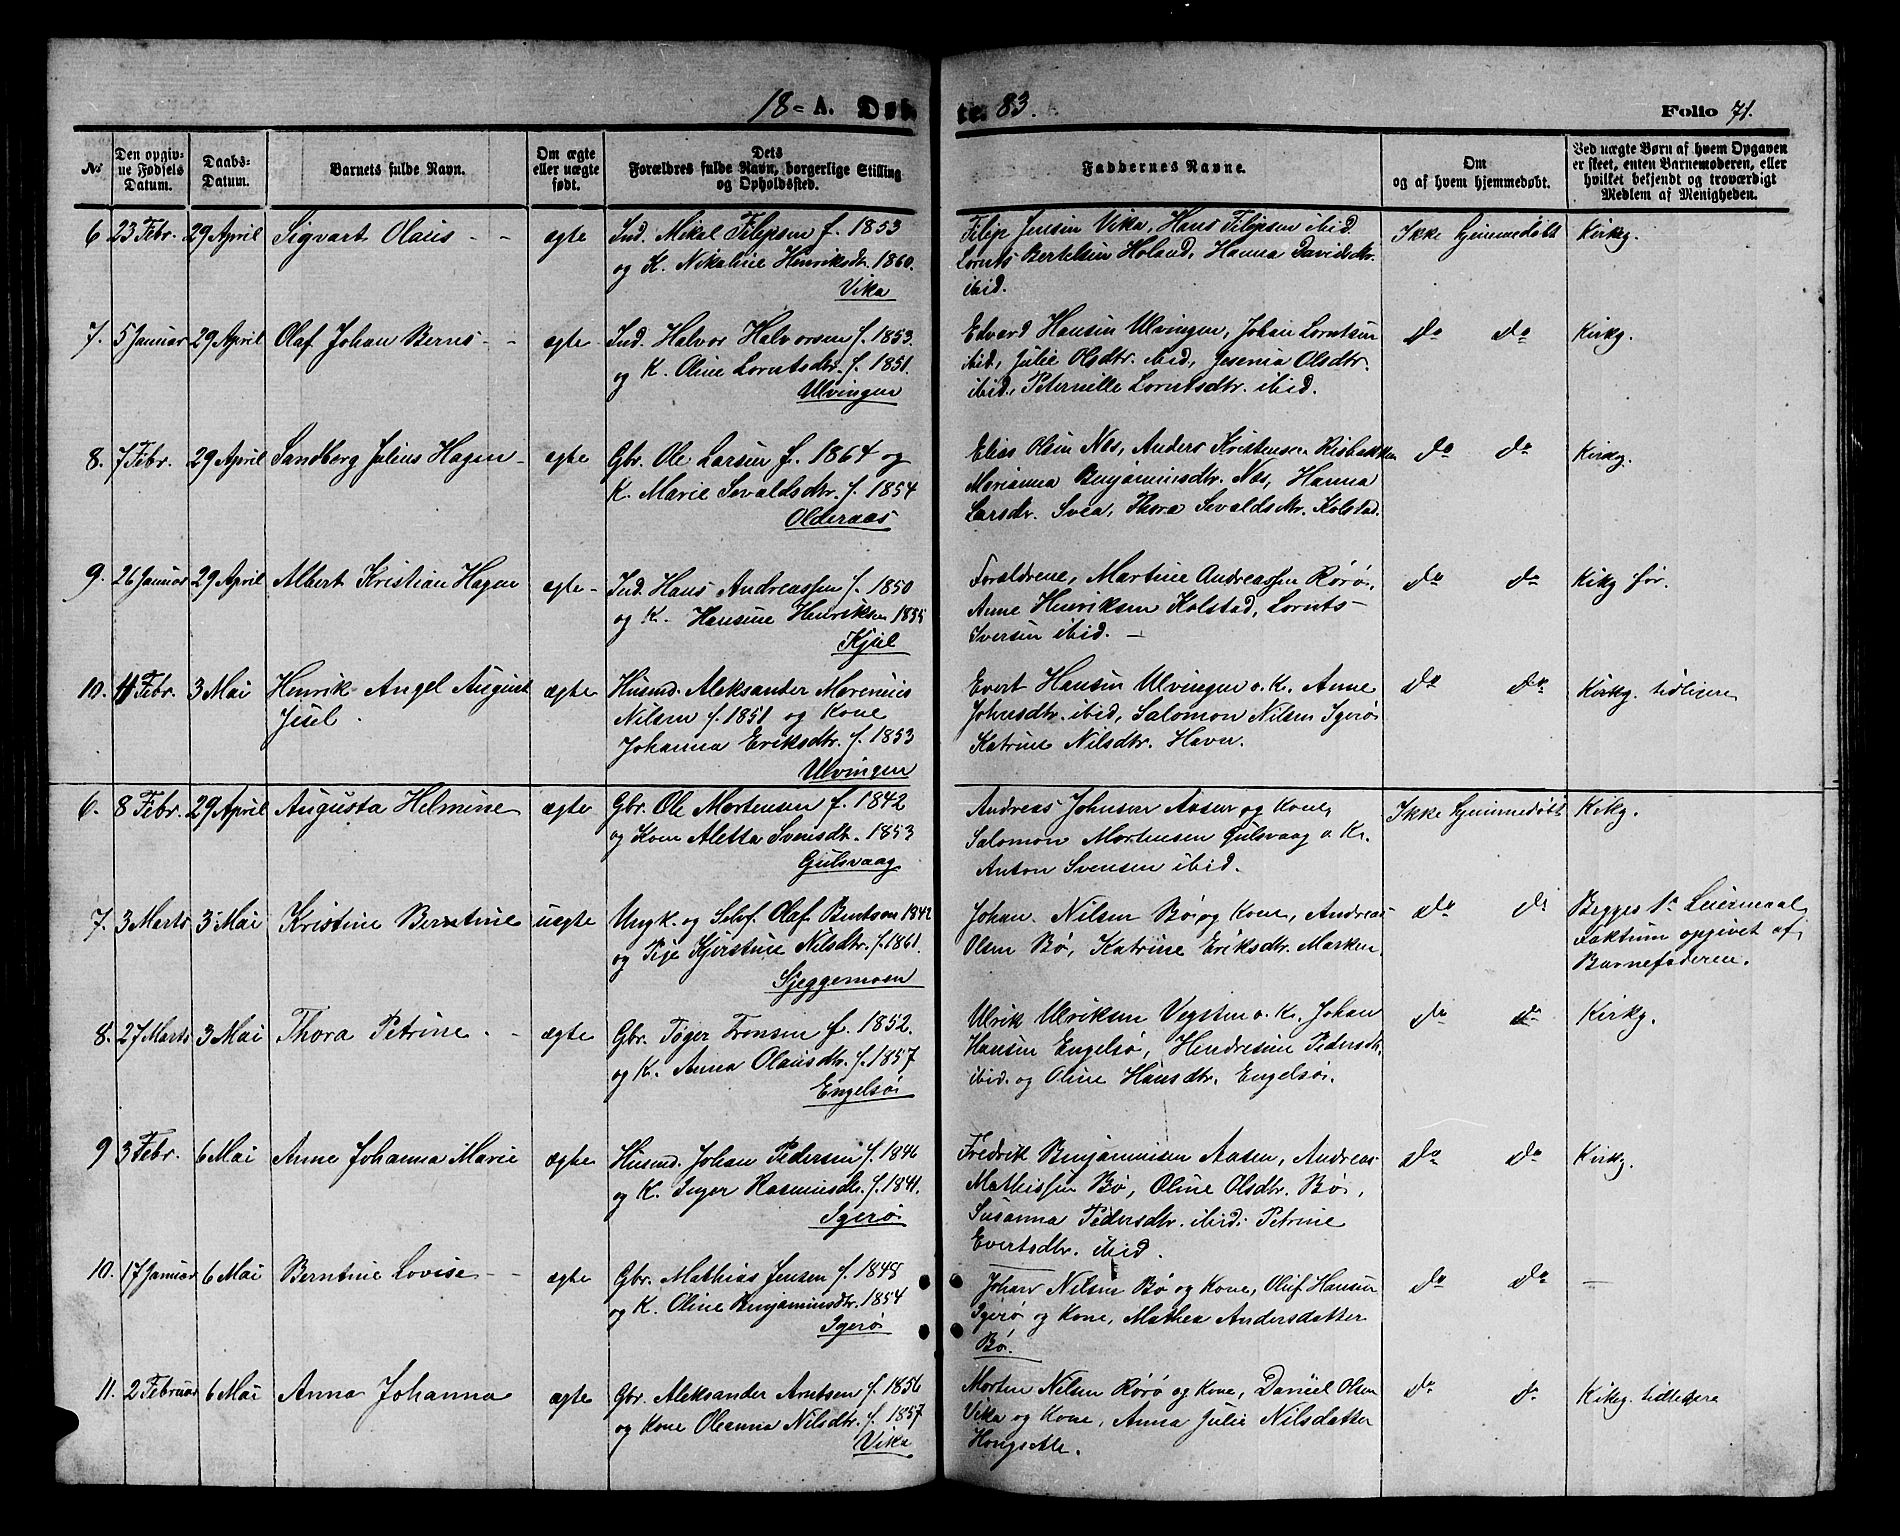 18-A. Døbte. 83.
Folio 71.
No
Den opgivne Fødsels Datum.
Daabs-Datum.
Barnets fulde Navn.
Om ægte eller uægte født.
Dets Forældres fulde Navn, borgerlige Stilling og Opholdssted.
Faddernes Navne.
Om og af hvem hjemmedøbt.
Ved uægte Børn af hvem Opgaven er skeet, enten Barnemoderen, eller hvilket bekjendt og troværdigt Medlem af Menigheden.
6 23 Febr. 29 April Sigvart Olaus - - ægte
Ind. Mikal Filipsen f. 1853
og K. Nikoline Henriksdtr. 1860.
Vika
Filip Jensen Vika, Hans Filipsen ibid
Lornts Bertelsen Høland, Hanna Davidsdtr.
ibid.
Ikke hjemmedøbt Kirkg.
7. 5 Januar 29 April Olaf Johan Bernt - - ægte
Ind. Halvor Halvorsen f. 1853.
og K. Oline Lorntsdtr. f. 1851.
Ulvingen
Edvard Hansen Ulvingen, Johan Lorntsen
ibid, Julie Olsdtr. ibid, Jesenia Olsdtr.
ibid, Peternille Lorntsdtr. ibid.
do do Kirkg.
8. 7 Febr. 29 April Sandberg Julius Hagen - ægte
Gbr. Ole Larsen f. 1864 og
K. Marie Sevaldsdtr. f. 1854
Olderaas
Elias Olsen Nes, Anders Kristensen Risbakken
Marianna Benjaminsdtr. Nes, Hanna
Larsdr. Svea, Thora Sevaldsdtr. Kolstad.
do do Kirkg.
9. 26 Januar 29 April Albert Kristian Hagen ægte -
Ind. Hans Andreassen f. 1850
og K. Hansine Henriksen 1855
Kjul
Forældrene, Martine Andreassen Rørø,
Anne Henriksen Kolstad, Lornts
Iversen ibid. -
do do Kikg før.
10. 11 Febr. 3 Mai Henrik Angel August ægte
Jisel.
Husmd. Aleksander Marenius
Nilsen f. 1851 og Kone
Johanna Eriksdtr. f. 1853
Ulvingen
Evert Hansen Ulvingen o. K. Anne
Johnsdtr. ibid, Salomon Nilsen Igerø
Katrine Nilsdtr. Havn.
do do Kirkg. tidligere
6. 8 Febr. 29 April Augusta Helmine ægte
Gbr. Ole Mortensen f. 1842
og Kone Aletta Svensdtr. 1853
Gulsvaag
Andreas Johnsen Aasen og Kone,
Salomon Mortensen Gulsvaag o K.
Anton Svensen ibid.
Ikke hjemmedøbt Kikg.
7. 3 Marts 3 Mai Kristine Berntine uægte
Ungk. og Selvf. Olaf Bentsen 1842
og Pige Kjerstine Nilsdtr. f. 1861.
Sjeggemoen
Johan Nilsen Bø og Kone, Andreas
Olsen Bø, Katrine Eriksdtr. Marken
do do Begges 1ste Leiermaal
Faktum opgivet af
Barnefaderen.
8. 27 Marts 3 Mai Thora Petrine - - ægte
Gbr. Toger Tronsen f. 1852.
og K. Anna Olausdtr. f. 1857
Engelsø.
Ulrik Ulriksen Vegsten o. K. Johan
Hansen Engelsø, Hendresine Pedersdtr.
ibid. og Oline Hansdtr. Engelsø.
do do Kirkg.
9 3 Febr. 6 Mai Anne Johanna Marie ægte
Husmd. Johan Pedersen f. 1846
og K. Inger Rasmusdtr. f. 1841.
Igerø
Fredrik Benjaminsen Aasen, Andreas
Mathissen Bø, Oline Olsdtr. Bø,
Susanna Pedersdtr. ibid. Petrine
Evertsdtr. ibid.
do do Kirkg.
10. 17 Januar 6 Mai Berntine Lovise - - ægte
Gbr. Mathias Jensen f. 1848
og K. Oline Benjaminsdtr. 1854
Igerø
Johan Nilsen Bø og Kone, Oluf Hansen
Igerø og Kone, Mathea Andersdatter
Bø.
do do -
11. 2 Februar 6 Mai Anna Johanna ægte
Gbr. Aleksander Arntsen f. 1856
og Kone Oleanna Nilsdtr. f. 1857
Vika
Morten Nilsen Rørø og Kone, Daniel Olsen
Vika og Kone, Anna Julie Nilsdatter
Hongsetle.
do do Kikeg. tidligere